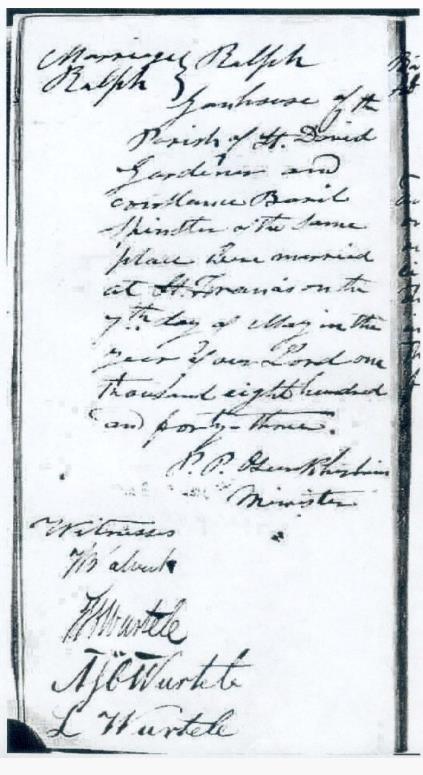 Marriage Ralph
Ralph
of the
Parish of St. David
Gardiner and
Constance Basil
Spinster of the same
place were married
at St. Francis on the
7th day of May in the
year of our Lord one
thousand eight hundred
and forty-three.
P. P.
Minister
Witnesses
Wurtele
Wurtele
L Wurtele